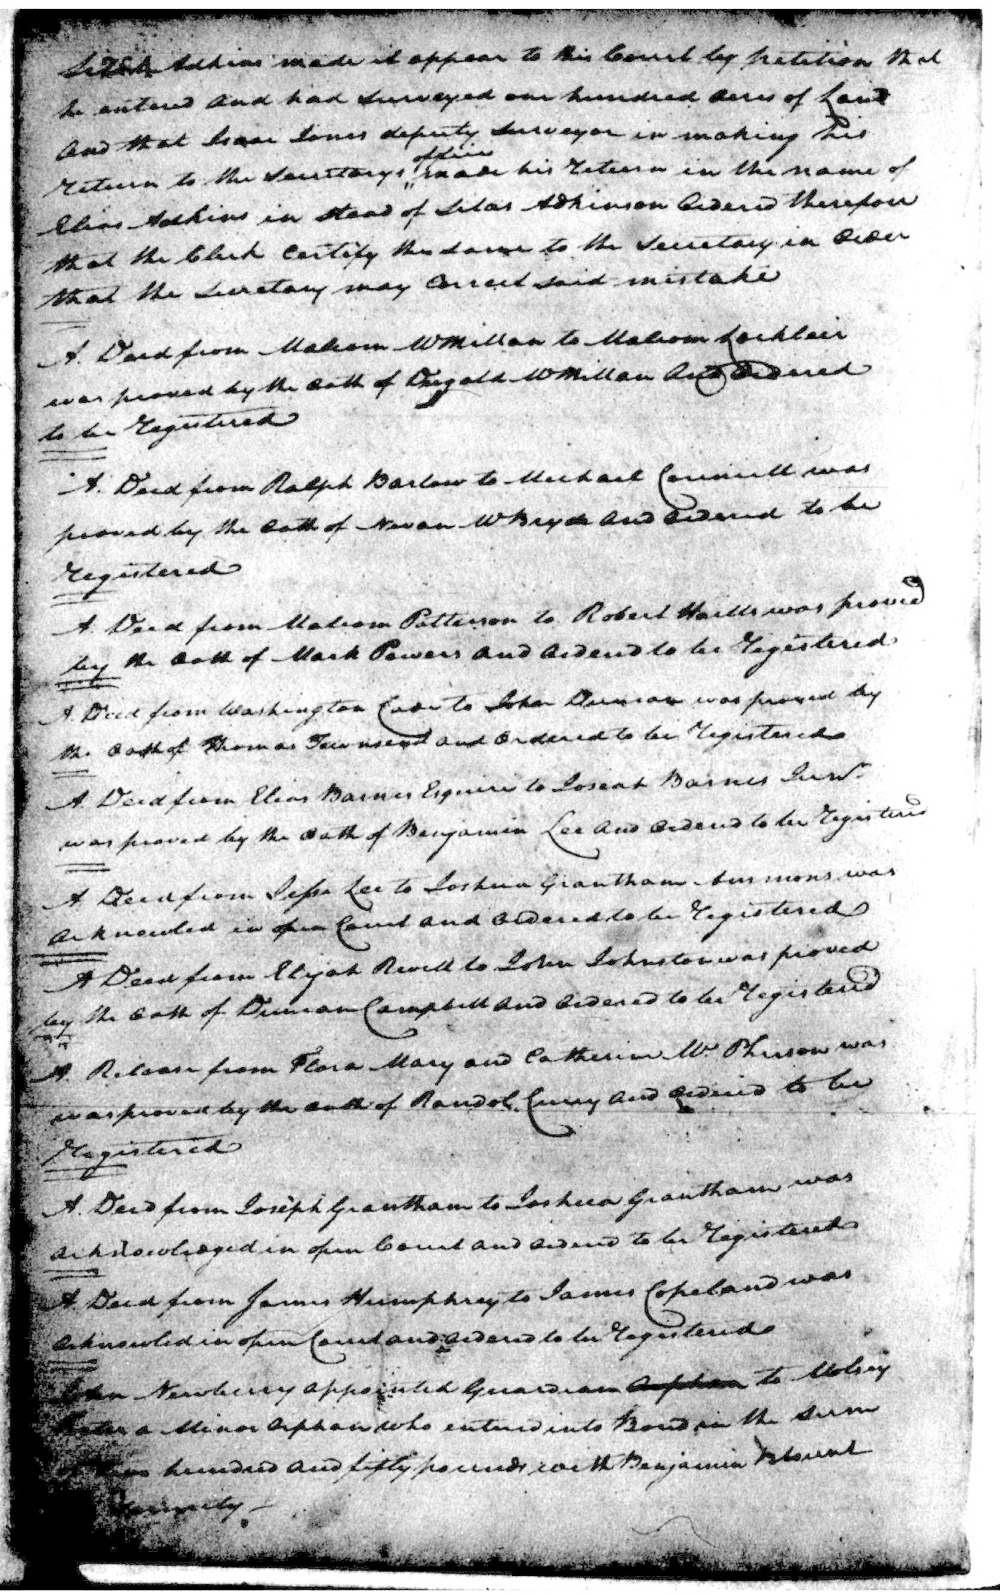 Adkins made it appear to this Court by petition that
he entered and had surveyed one hundred acres of Land
And that Isaac Jones deputy surveyor in making his
return to the Secretarys office made his return in the name of
Elias Adkins in stead of Silas Adkinson Ordered therefore
that the Clerk Certify the same to the Secretary in Order
that the Secretary may Correct said mistake
A. Deed from Malcom McMillan to Malcom Locklair
was proved by the Oath of Dugald McMillan And Ordered
to be Registered
A. Deed from Ralph Barlow to Michael Councill was
proved by the Oath of Nevan McBryde And Ordered to be
Registered
A. Deed from Malcom Patterson to Robert was proved
by the Oath of Mark Powers And Ordered to be Registered
A. Deed from Washington to John Duncan was proved by
the Oath of Thomas Townsend and Ordered to be Registered
A. Deed from Elias Barnes Esquire to Josiah Barnes Junr
was proved by the Oath of Benjamin Lee And Ordered to be Registered
A Deed from Jesse Lee to Joshua Grantham was
Acknowled in open Court and Ordered to be Registered
A Deed from Elijah Revell to John Johnston was proved
by the Oath of Duncan Campbell And Ordered to be Registered
A. Release from Flora Mary and Catherine Mc Pherson was
was proved by the Oath of Randol Curry And Ordered to be
Registered
A. Deed from Joseph Grantham to Joshua Grantham was
acknowledged in open Court and Ordered to be Registered
A. Deed from James Humphrey to James Copeland was
acknowled in open Court and Ordered to be Registered
Newberry appointed Guardian Orphan to
a Minor Orphan who entered into Bond in the Sum
hundred and fifty pounds with Benjamin Blount